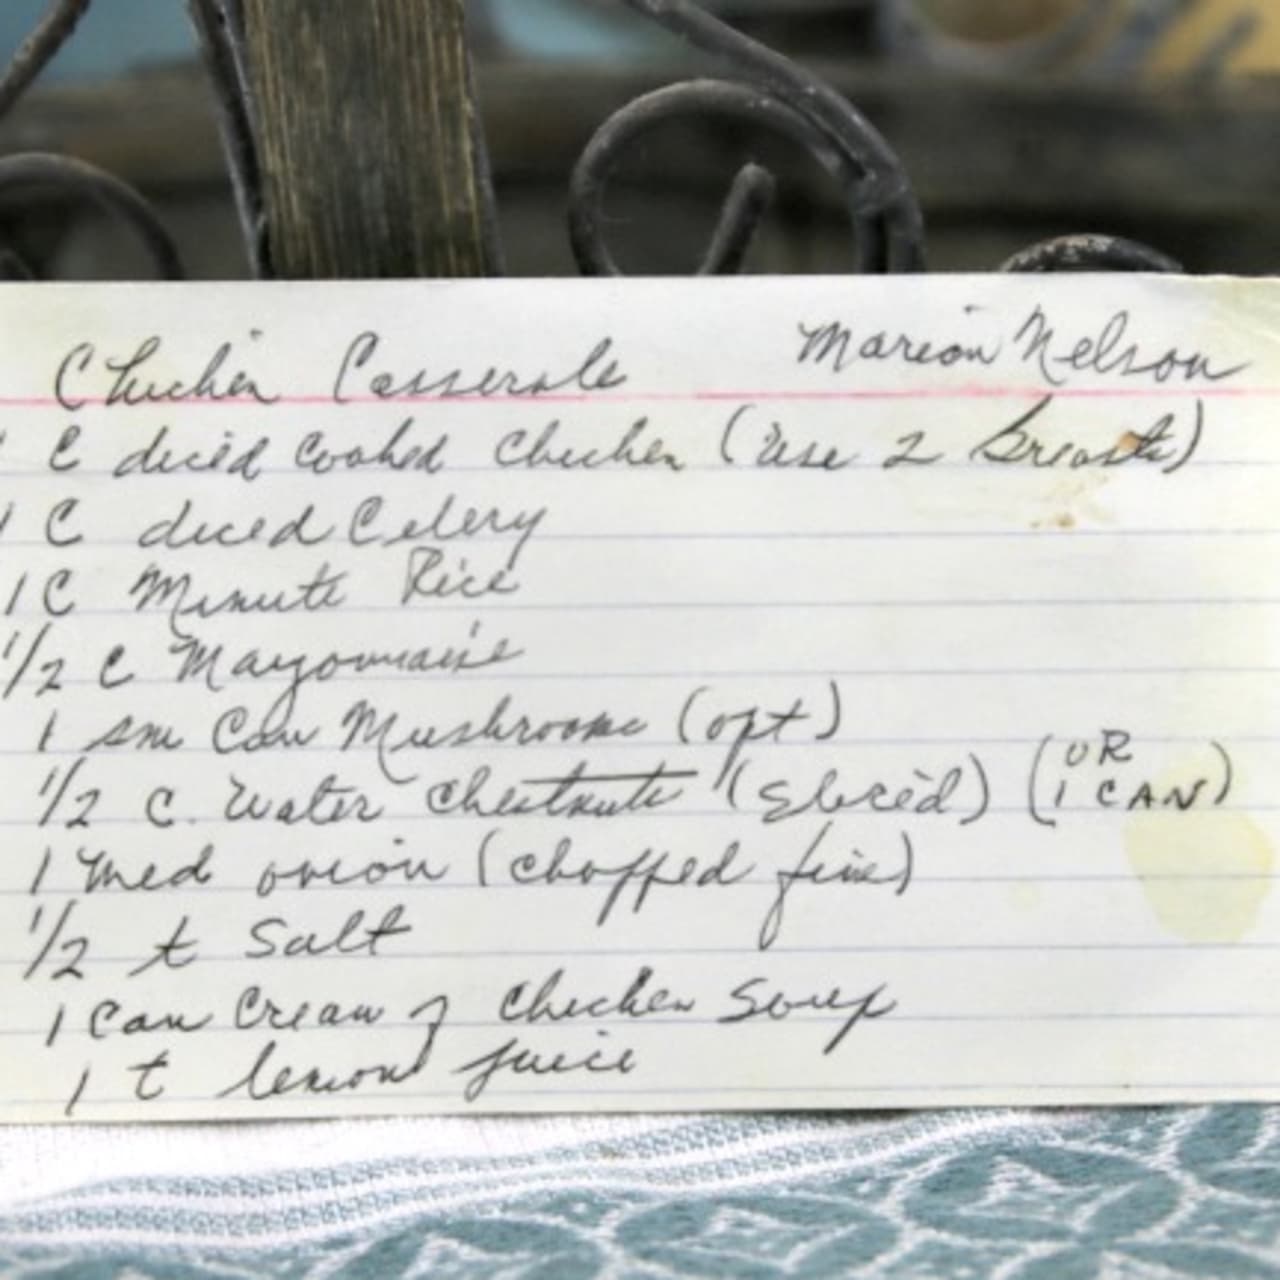 Chicken Casserole Marion Nelson
C diced cooked chicken (use 2 breasts)
1 C diced Celery
1 C Minute Rice
1/2 C Mayonnaise
1 sm Can Mushrooms (opt)
1/2 C. Water Chestnuts (sliced) (OR 1 CAN)
1 med onion (chopped fine)
1/2 t Salt
1 Can Cream of Chicken Soup
1 t lemon juice